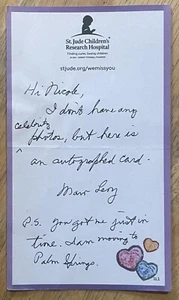 St. Jude Children's
Research Hospital
Finding cures. Saving children.
stjude.org/wemissyou
Hi Nicole,
I don't have any
celebrity
photos, but here is
^ an autographed card.
P.S. You got me just in
time. I am moving to
Palm Springs.